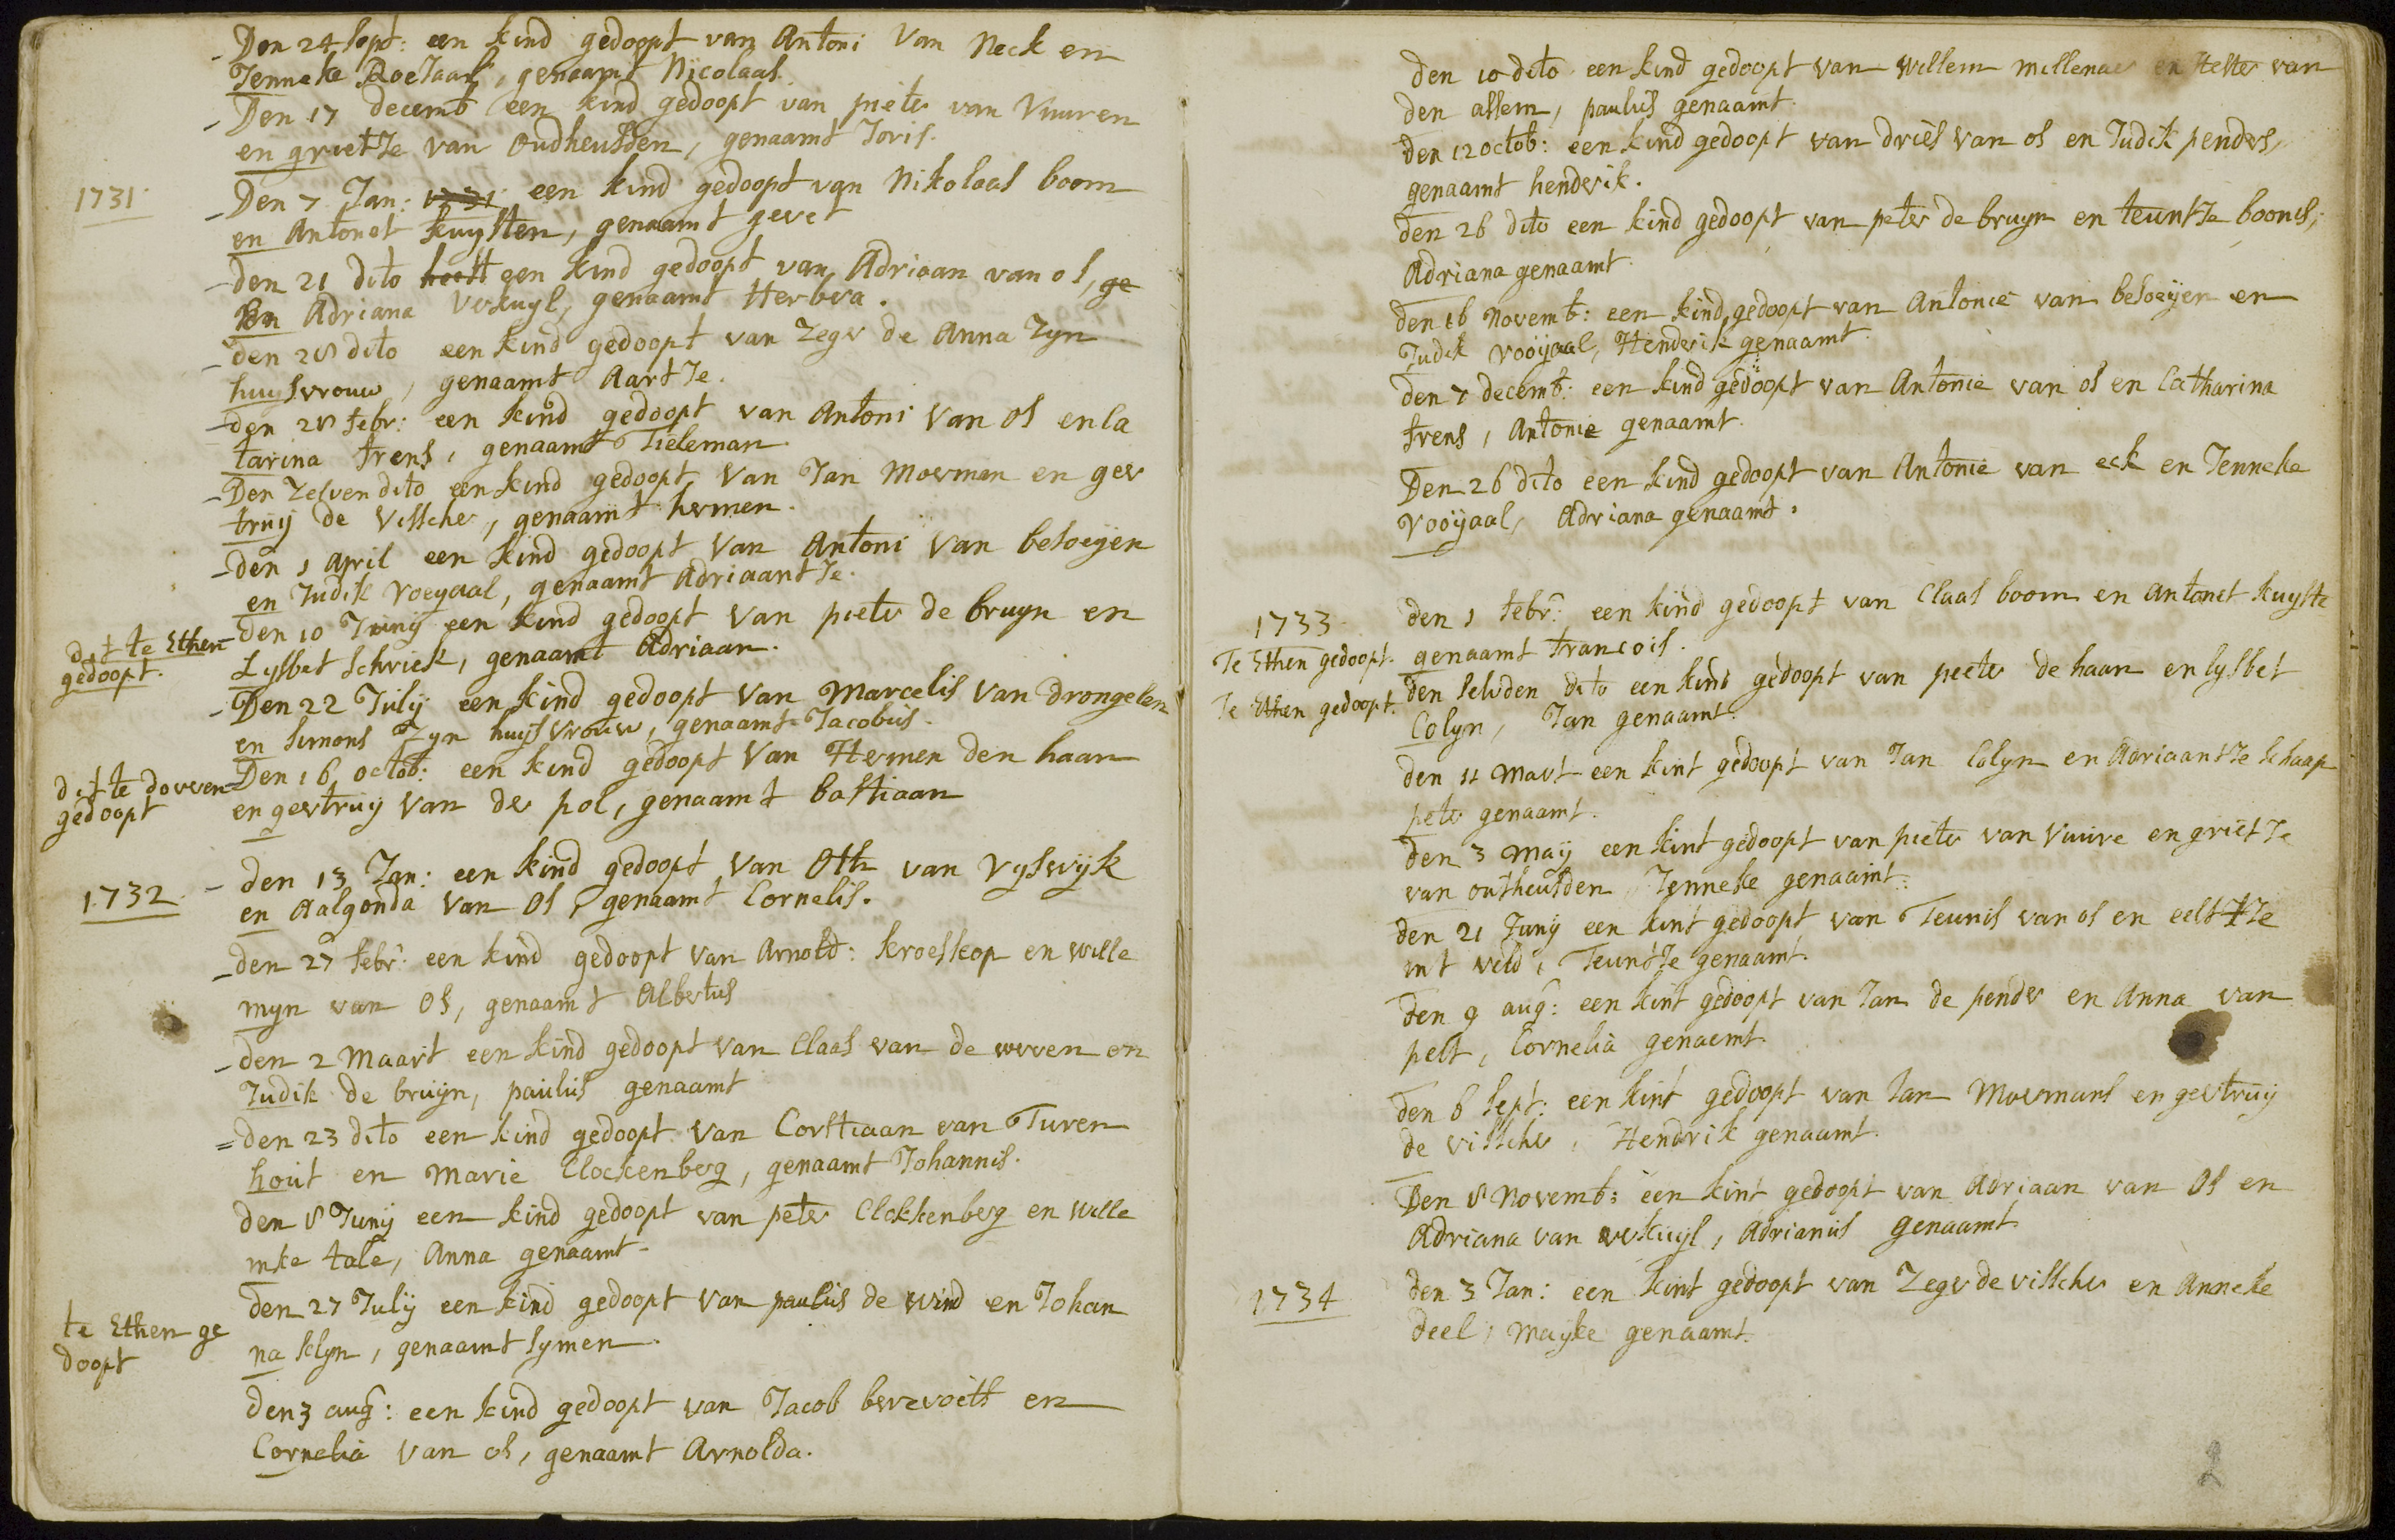 Den 24 sept: een kind gedoopt van Antoni Van Neck en
Jenneke Roetaal, genaamt Nicolaas.
Den 17 decemb een kind gedoopt van pieter van Vuuren
en grietje van Oudheusden, genaamt Joris.
1731.
Den 7 Jan: 1731 een kind gedoopt van Nikolaas boom
en Antonet kuysten, genaamt geret
den 21 dito heeft een kind gedoopt van Adriaan van os, ge
En Adriana Verkuyl, genaamt Herbera.
den 28 dito een kind gedoopt van Zeger de Anna Zyn
huysvrouw, genaamt Aartje.
den 28 febr: een kind gedoopt van Antoni Van Os en Ca
tarina frens, genaamt Tieleman
Den Zelven dito een kind gedoopt Van Jan Moerman en ger
truij de Visscher, genaamt hermen.
den 1 April een kind gedoopt Van Antoni Van besoeijen
en Judik Voeyaal, genaamt Adriaantje.
dit te Ethen
gedoopt.
den 10 Junij een kind gedoopt Van pieter de bruyn en
Lysbet Schriek, genaamt Adriaan.
Den 22 Julij een kind gedoopt Van Marcelis Van Drongelen
en Simons Zyn huysvrouw, genaamt Jacobus.
dit te doveren
gedoopt
Den 16 octob: een kind gedoopt Van Hermen den haan
en gertruy Van der pol, genaamt bastiaan
1732.
den 13 Jan: een kind gedoopt Van Oth van Vyswyk
en Aalgonda Van Os, genaamt Cornelis.
den 27 febr: een kind gedoopt van Arnold: kroeskop en Wille
myn van Os, genaamt Albertus
den 2 Maart een kind gedoopt van Claas van de werven en
Judik de bruijn, paulus genaamt
den 23 dito een kind gedoopt Van Corstiaan van Turen
hout en Marie Clockenberg, genaamt Johannis.
den 8 Junij een kind gedoopt van peter Clokkenberg en Wille
mke tale, Anna genaamt.
te Ethen ge
doopt
den 27 Julij een kind gedoopt Van paulus de Wind en Johan
na sclyn, genaamt Symen.
den 3 aug: een kind gedoopt van Jacob berevoets en
Cornelia Van os, genaamt Arnolda.
den 10 dito een kind gedoopt van Willem millenaer en Hester van
den assem, paulus genaamt.
den 12 octob: een kind gedoopt van dries van os en Judik penders,
genaamt henderik.
den 26 dito een kind gedoopt van peter de bruyn en teuntje boons,
Adriana genaamt.
den 16 Novemb: een kind gedoopt van Antonie van besoeijen en
Judik Vooijaal, Henderik genaamt.
den 7 decemb: een kind gedoopt van Antonie van os en Catharina
frens, Antonie genaamt.
Den 26 dito een kind gedoopt van Antonie van eck en Jenneke
Vooijaal, Adriana genaamt.
1733
Te Ethen gedoopt.
den 1 febr: een kind gedoopt van Claas boom en Antonet kuyste
genaamt francois.
Te Ethen gedoopt.
den selvden dito een kind gedoopt van peeter de haan en lysbet
Colyn, Jan genaamt.
den 11 Mart een kint gedoopt van Jan Colyn en Adriaantje schaap
peter genaamt.
den 3 Maij een kint gedoopt van pieter van Vuure en grietje
van outheusden, Jenneke genaamt.
den 21 Junij een kint gedoopt van Teunis van os en eeltje
int veld, Teuntje genaamt.
den 9 aug: een kint gedoopt van Jan de pender en Anna van
pelt, Cornelia genaemt.
den 6 sept: een kint gedoopt van Jan Moermans en gertruij
de visscher, Hendrik genaamt.
Den 8 Novemb: een kint gedoopt van Adriaan van Os en
Adriana van verkuyl, Adrianus genaamt
1734
den 3 Jan: een kint gedoopt van Zeger de visscher en Anneke
deel, Mayke genaamt.
2